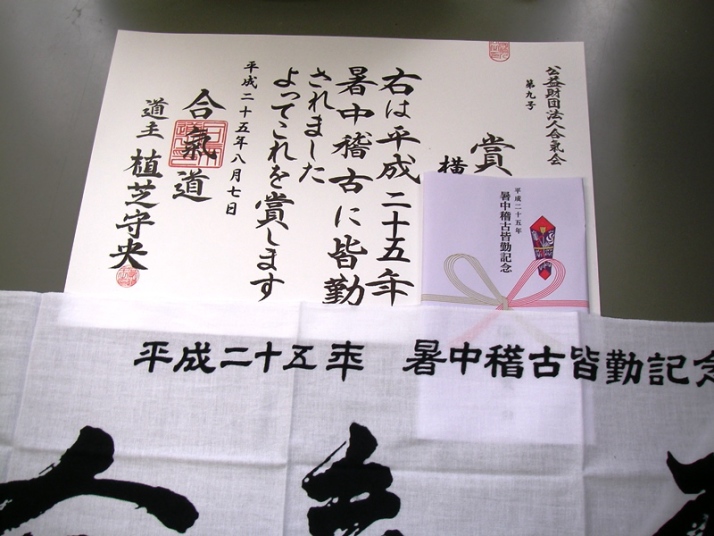 公益財団法人合氣会
第九号
賞
横
右は平成二十五年
暑中稽古に皆勤
されました
よってこれを賞します
平成二十五年八月七日
合氣道
道主 植芝守央
平成二十五年
暑中稽古皆勤記念
平成二十五年 暑中稽古皆勤記念